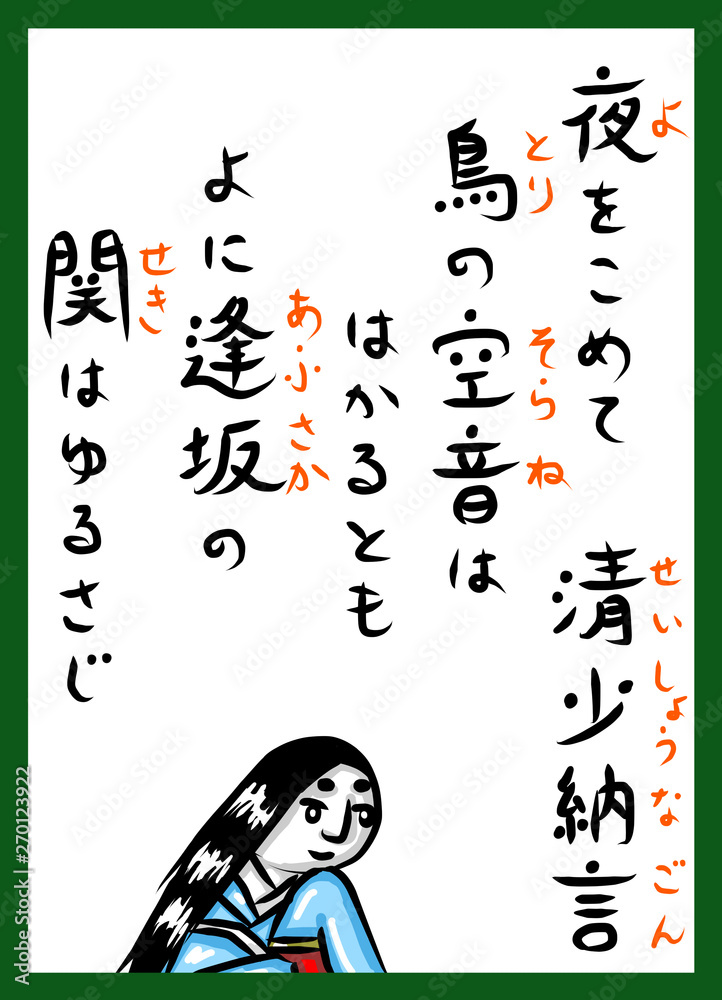 夜をこめて
よ
清少納言
せいしょうなごん
鳥の空音は
とり そらね
はかるとも
よに逢坂の
あふさか
関はゆるさじ
せき
Adobe Stock | #270123922